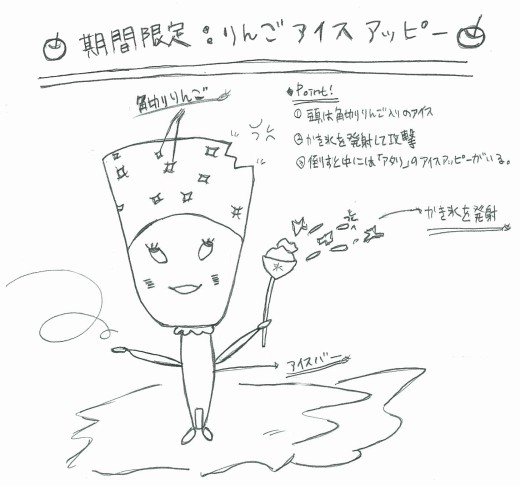 期間限定:りんごアイスアッピー
角切りりんご
Point!
① 頭は角切りりんご入りのアイス
② かき氷を発射して攻撃
③ 倒すと中には「アタリ」のアイスアッピーがいる。
かき氷を発射
アイスバー